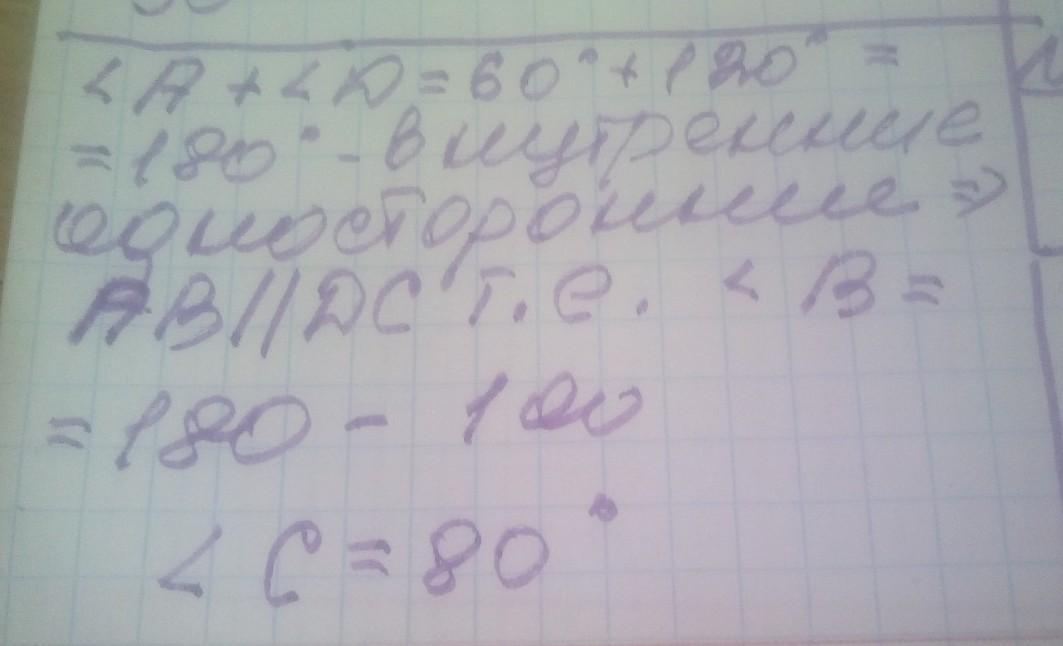 ∠A + ∠D = 60° + 120° =
= 180° - внутренние
односторонние =>
AB || DC т.е. ∠B =
= 180 - 100
∠C = 80°